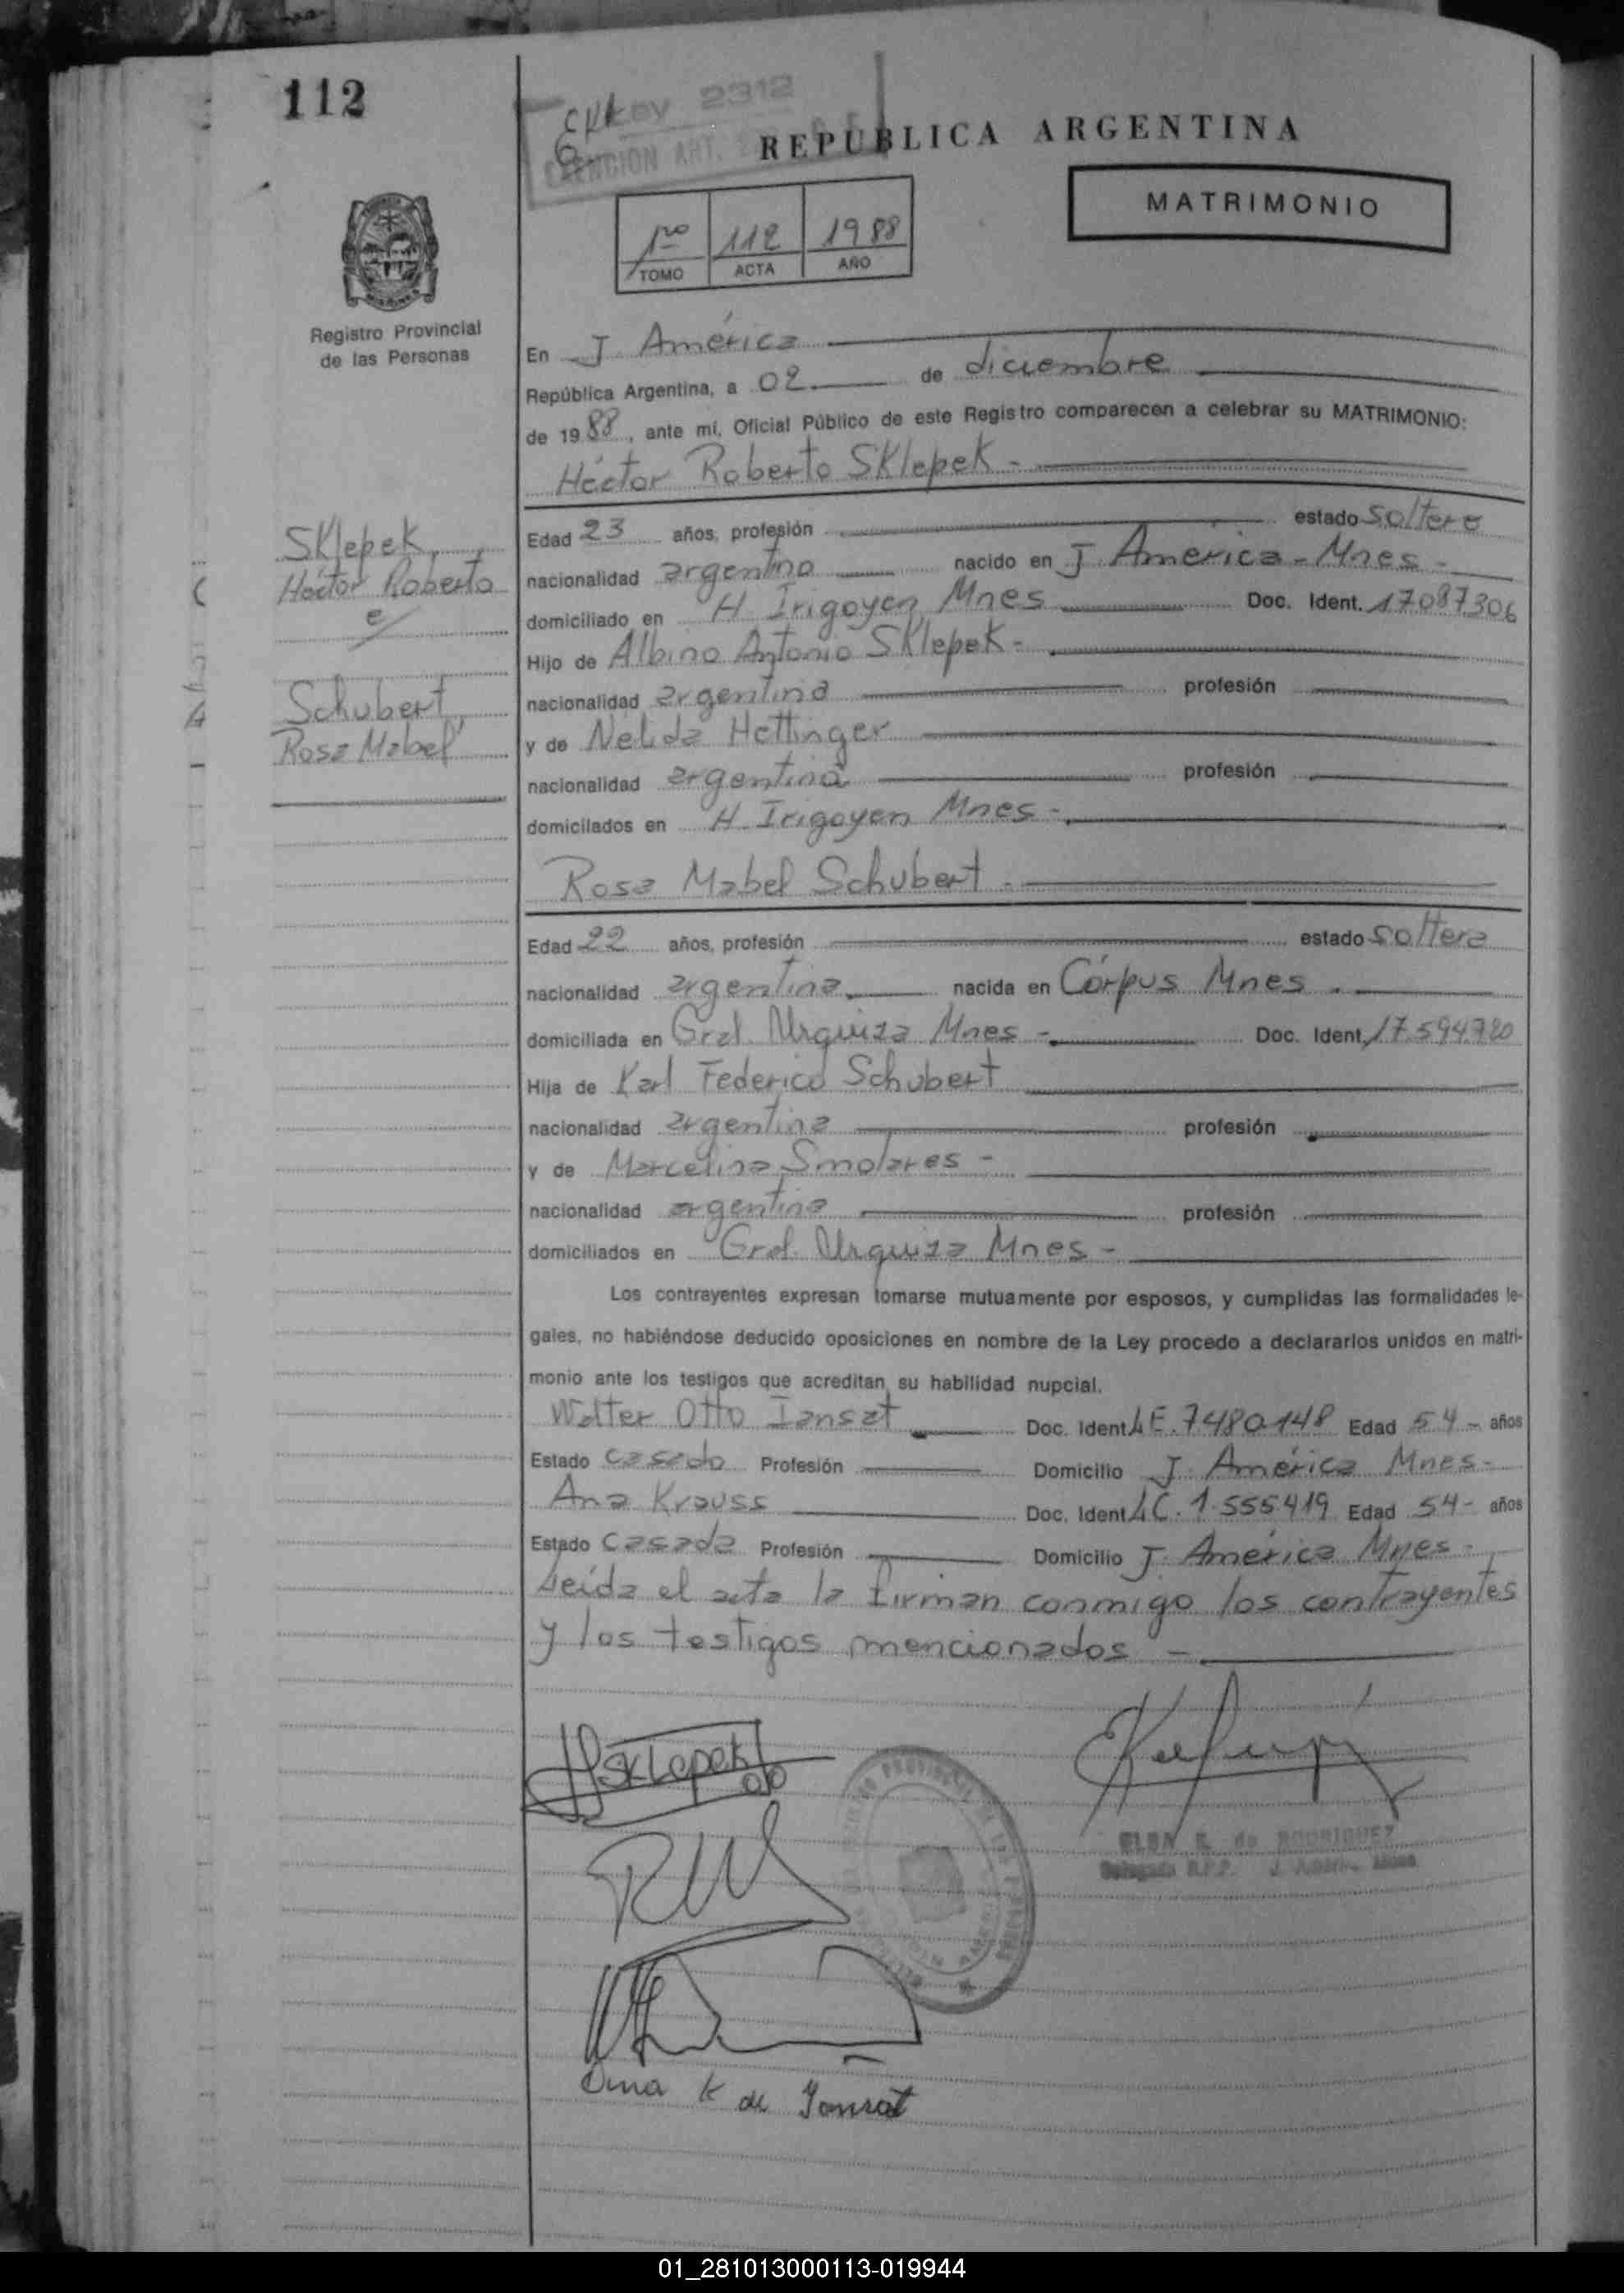 112
Ley 2312
EXENCION ART.
REPUBLICA ARGENTINA
MATRIMONIO
1ro 112 1988
TOMO ACTA AÑO
Registro Provincial
de las Personas
En J. América
República Argentina, a 02 de diciembre
de 1988, ante mí, Oficial Público de este Registro comparecen a celebrar su MATRIMONIO:
Héctor Roberto Sklepek -
Sklepek,
Héctor Roberto
c/
Schubert,
Rosa Mabel
Edad 23 años, profesión estado soltero
nacionalidad argentino nacido en J. América - Mnes -
domiciliado en H. Irigoyen Mnes Doc. Ident. 17087306
Hijo de Albino Antonio Sklepek -
nacionalidad argentina profesión
y de Nelida Hettinger
nacionalidad argentina profesión
domicilados en H. Irigoyen Mnes -
Rosa Mabel Schubert -
Edad 22 años, profesión estado soltera
nacionalidad argentina nacida en Córpus Mnes .
domiciliada en Gral. Urquiza Mnes - Doc. Ident. 17.594.780
Hija de Karl Federico Schubert
nacionalidad argentina profesión
y de Marcelina Smolares -
nacionalidad argentina profesión
domiciliados en Gral. Urquiza Mnes -
Los contrayentes expresan tomarse mutuamente por esposos, y cumplidas las formalidades le-
gales, no habiéndose deducido oposiciones en nombre de la Ley procedo a declararlos unidos en matri-
monio ante los testigos que acreditan su habilidad nupcial.
Walter Otto Iansat Doc. Ident. LE. 7480148 Edad 54 - años
Estado casado Profesión Domicilio J. América Mnes -
Ana Krauss Doc. Ident. LC. 1.555419 Edad 54 - años
Estado casada Profesión Domicilio J. América Mnes -
Leída el acta la firman conmigo los contrayentes
y los testigos mencionados -
Sklepek
ELBA K. de RODRIGUEZ
Delegada R.P.P. J. Améri. Mnes
Ana K de Jansat
01_281013000113-019944